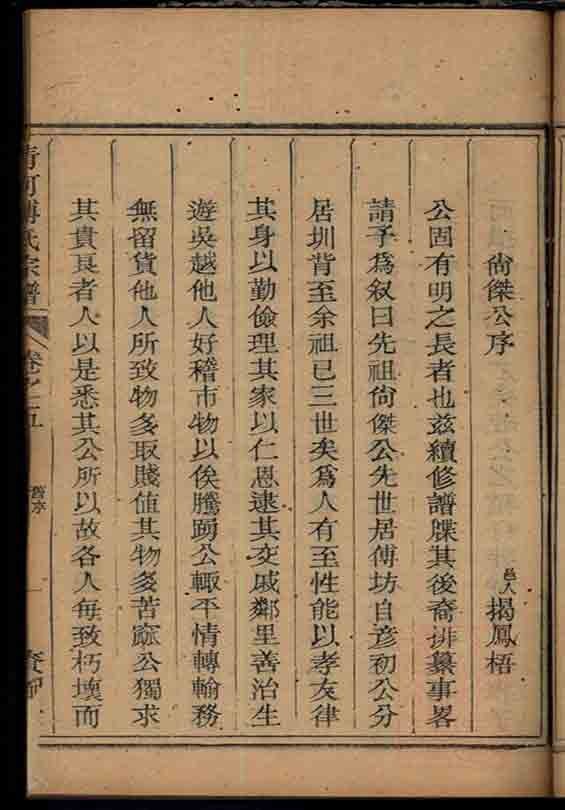 尙傑公序
邑人 揭鳳梧
公固有明之長者也茲續修譜牒其後裔排纂事畧
請予爲叙曰先祖尙傑公先世居傅坊自彦初公分
居圳背至余祖已三世矣爲人有至性能以孝友律
其身以勤儉理其家以仁恩逮其交戚鄰里善治生
遊吳越他人好稽市物以俟騰踴公輙平情轉輸務
無留貨他人所致物多取賤值其物多苦窳公獨求
其貴良者人以是悉其公所以故各人每致朽壞而
清河傅氏宗譜
卷之五
舊序